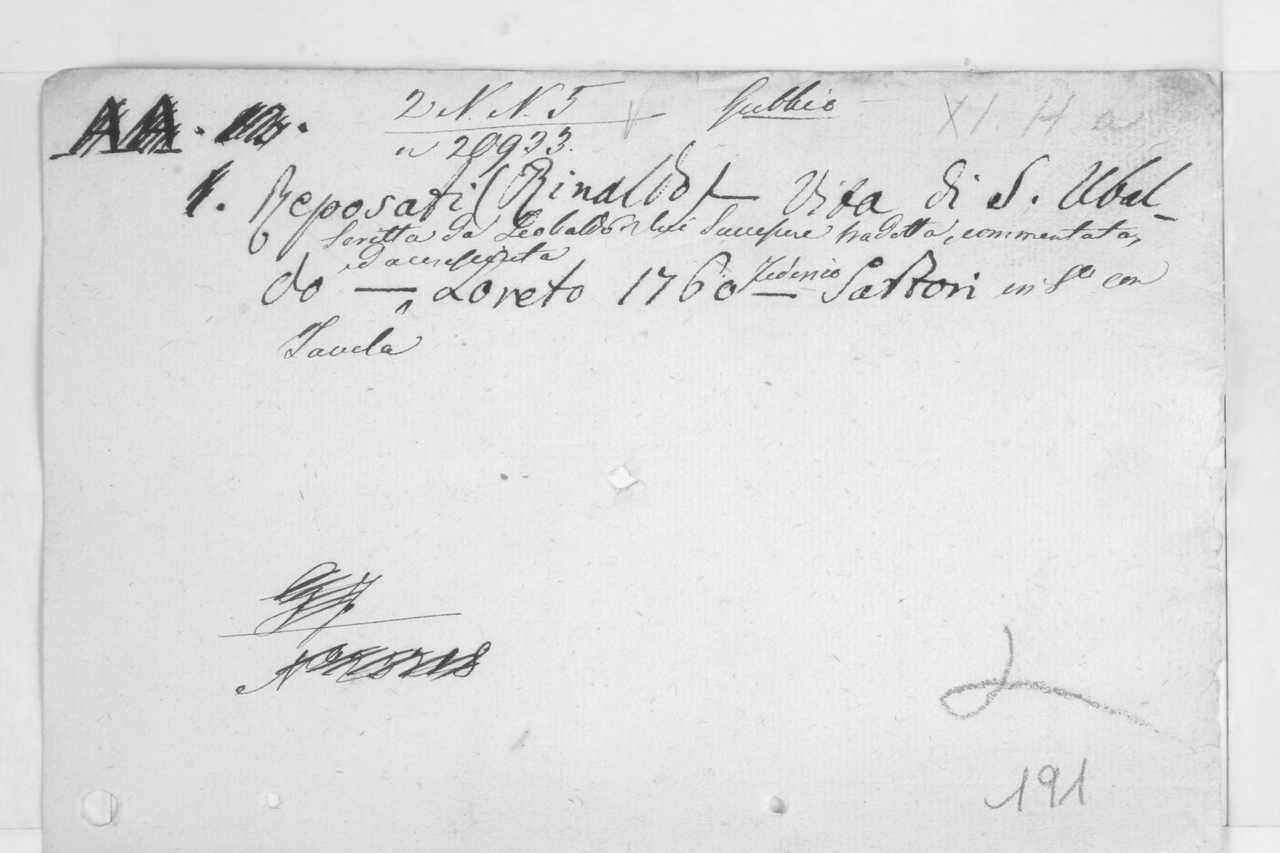 AA.
2 N. N. 5 Gubbio XI H a
n 20933.
1. Reposati (Rinaldo) — Vita di S. Ubal-
Scritta da Teobaldo di lui Successore tradotta, commentata,
ed accresciuta
do — Loreto 1760 — Federico Sartori in 8° con
Tavola
191